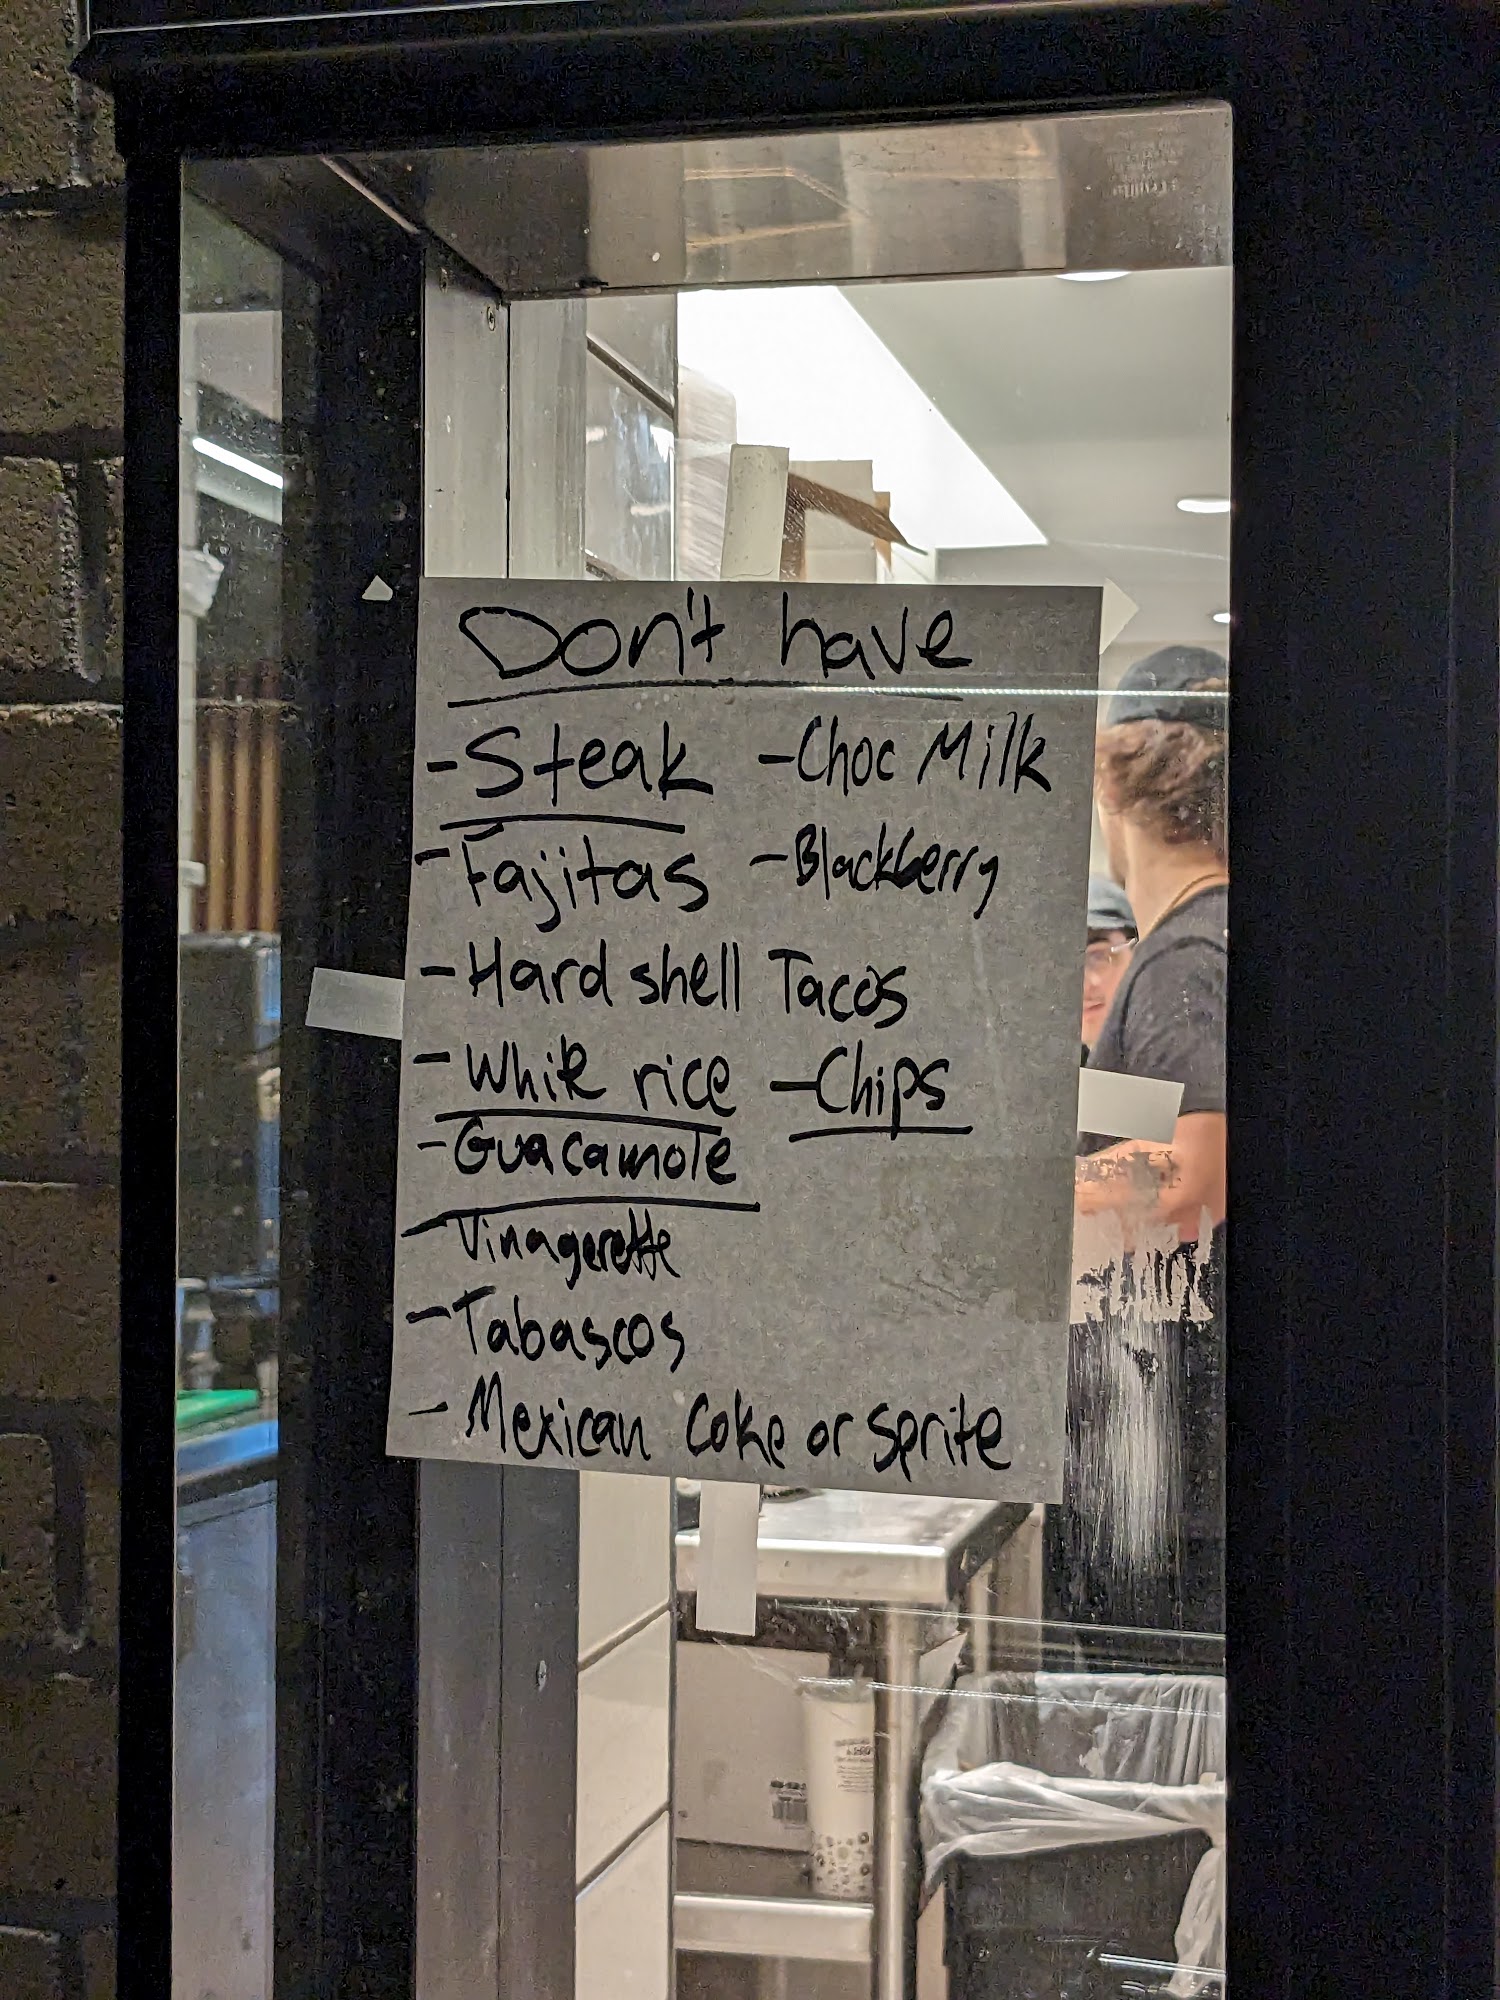 Don't have
- Steak - Choc Milk
- Fajitas - Blackberry
- Hard shell Tacos
- White rice - Chips
- Guacamole
- Vinagerette
- Tabascos
- Mexican Coke or Sprite